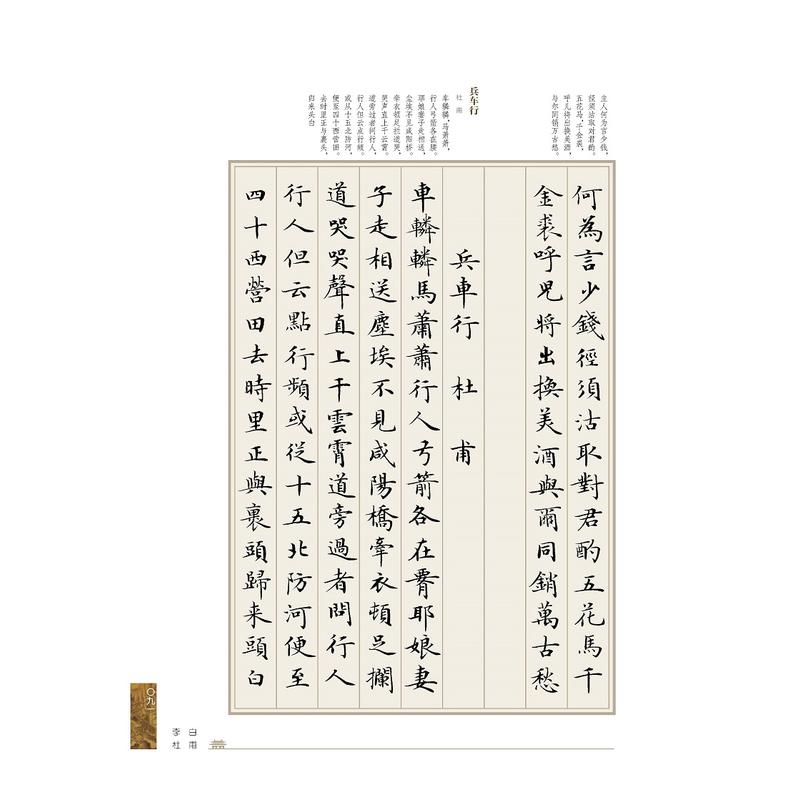 主人何为言少钱，
径须沽取对君酌。
五花马，千金裘，
呼儿将出换美酒，
与尔同销万古愁。
兵车行
杜甫
车辚辚，马萧萧，
行人弓箭各在腰。
耶娘妻子走相送，
尘埃不见咸阳桥。
牵衣顿足拦道哭，
哭声直上干云霄。
道旁过者问行人，
行人但云点行频。
或从十五北防河，
便至四十西营田。
去时里正与裹头，
归来头白
何為言少錢徑須沽取對君酌五花馬千
金裘呼兒將出換美酒與爾同銷萬古愁
兵車行 杜甫
車轔轔馬蕭蕭行人弓箭各在腰耶娘妻
子走相送塵埃不見咸陽橋牽衣頓足攔
道哭哭聲直上干雲霄道旁過者問行人
行人但云點行頻或從十五北防河便至
四十西營田去時里正與裹頭歸来頭白
〇九一
李白
杜甫